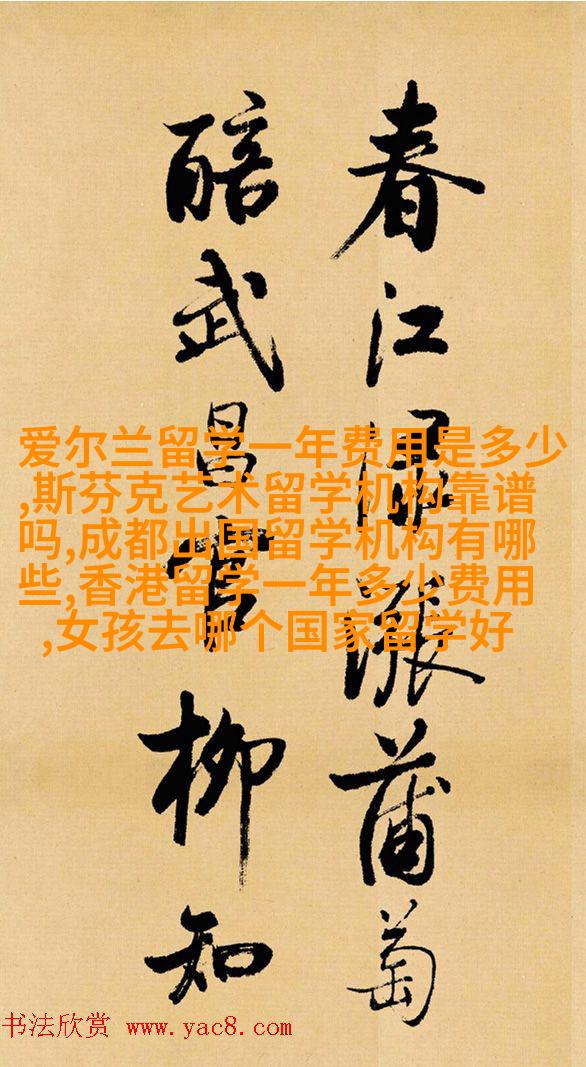 春江渌涨蒲萄
醅武昌官柳知
爱尔兰留学一年费用是多少
,斯芬克艺术留学机构靠谱
吗,成都出国留学机构有哪
些,香港留学一年多少费用
,女孩去哪个国家留学好
书法欣赏 www.yac8.com